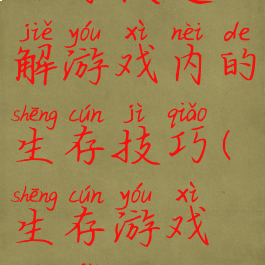 jiě yóu xì nèi de
解游戏内的
shēng cún jì qiǎo
生存技巧(
shēng cún yóu xì
生存游戏